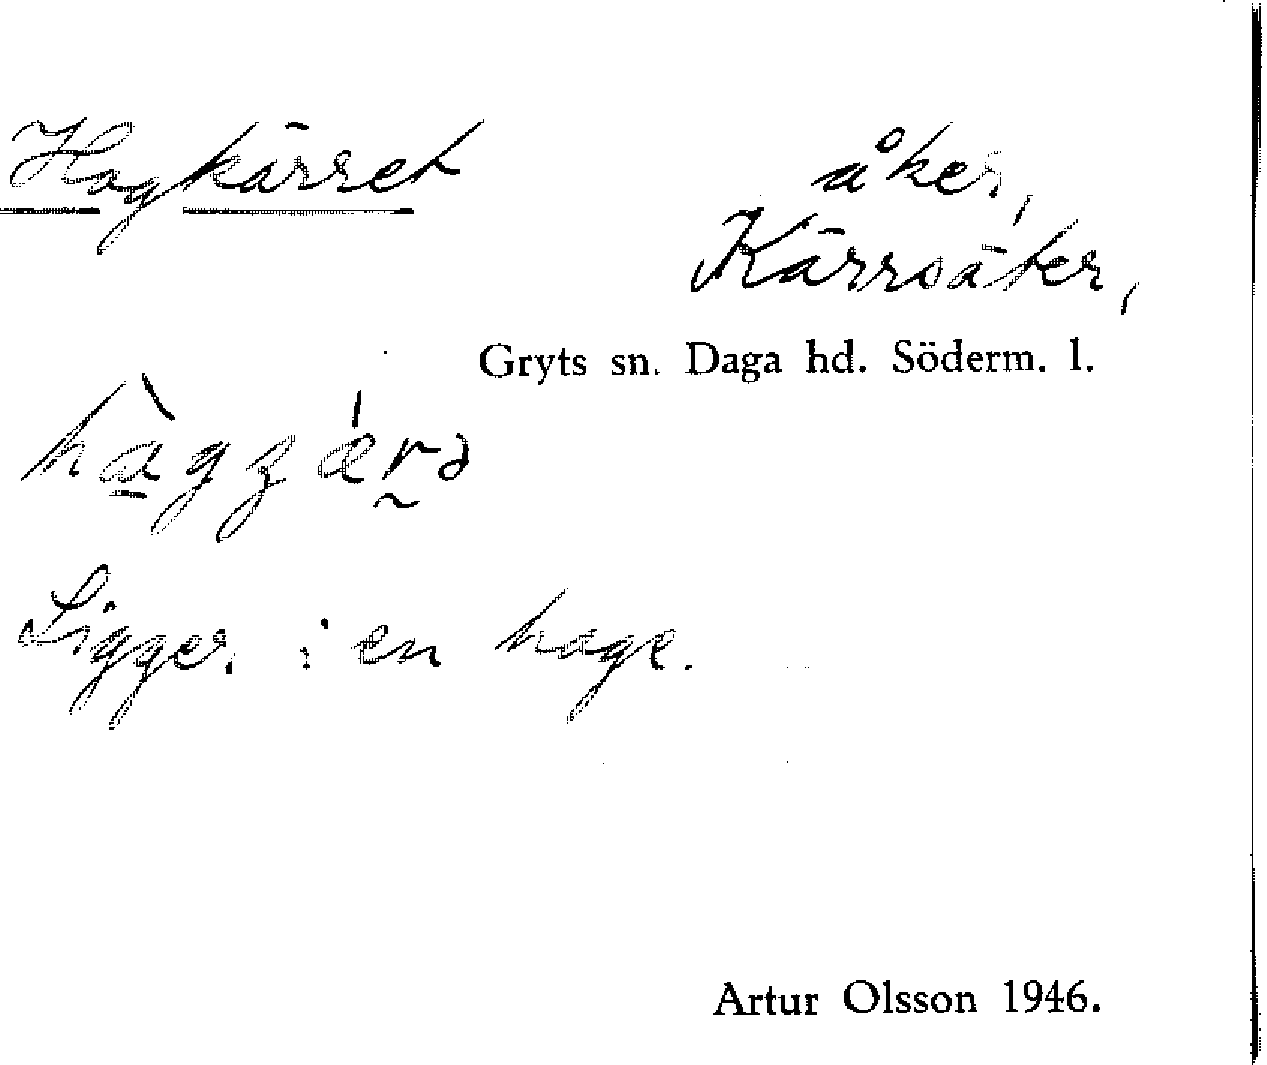 Hagkärret
åker,
Kärrsäter,
Gryts sn. Daga hd. Söderm. l.
hàgʒǽrə
Ligger i en hage.
Artur Olsson 1946.